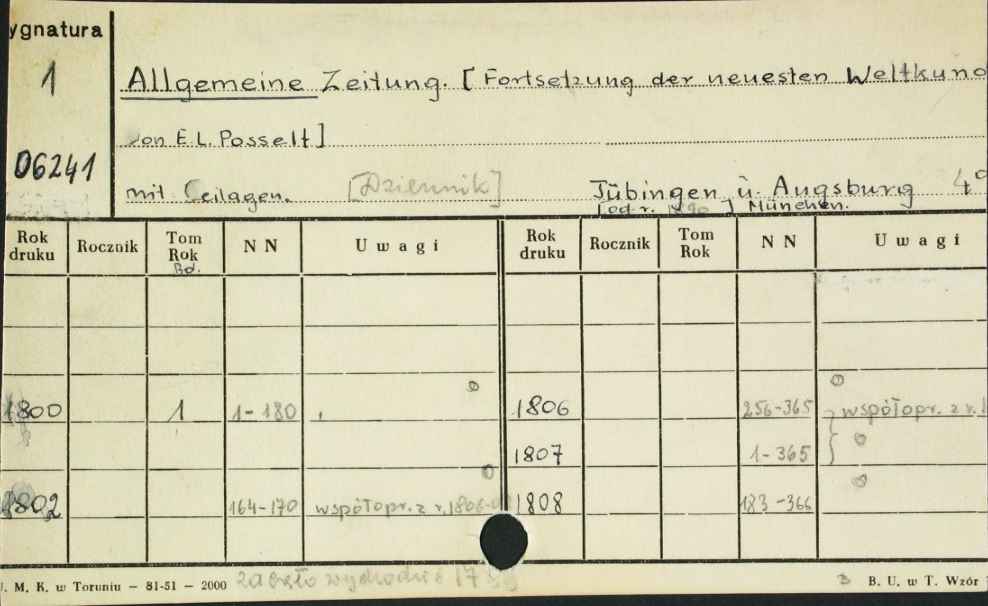 ygnatura
1
Allgemeine Zeitung. [Fortsetzung der neuesten Weltkund
von E.L. Posselt]
06241
mit Ceilagen. [Dziennik] Tübingen u. Augsburg 4°
[od r. ] München.
Rok druku Rocznik Tom Rok Bd. N N Uwagi Rok druku Rocznik Tom Rok N N Uwagi
1800 1 1-180 1806 256-365 współopr. z r. 1
1807 1-365
1802 164-170 współopr. z r. 1808 183-366
. M. K. w Toruniu — 81-51 — 2000 zaczęło wychodzić B. U. w T. Wzór